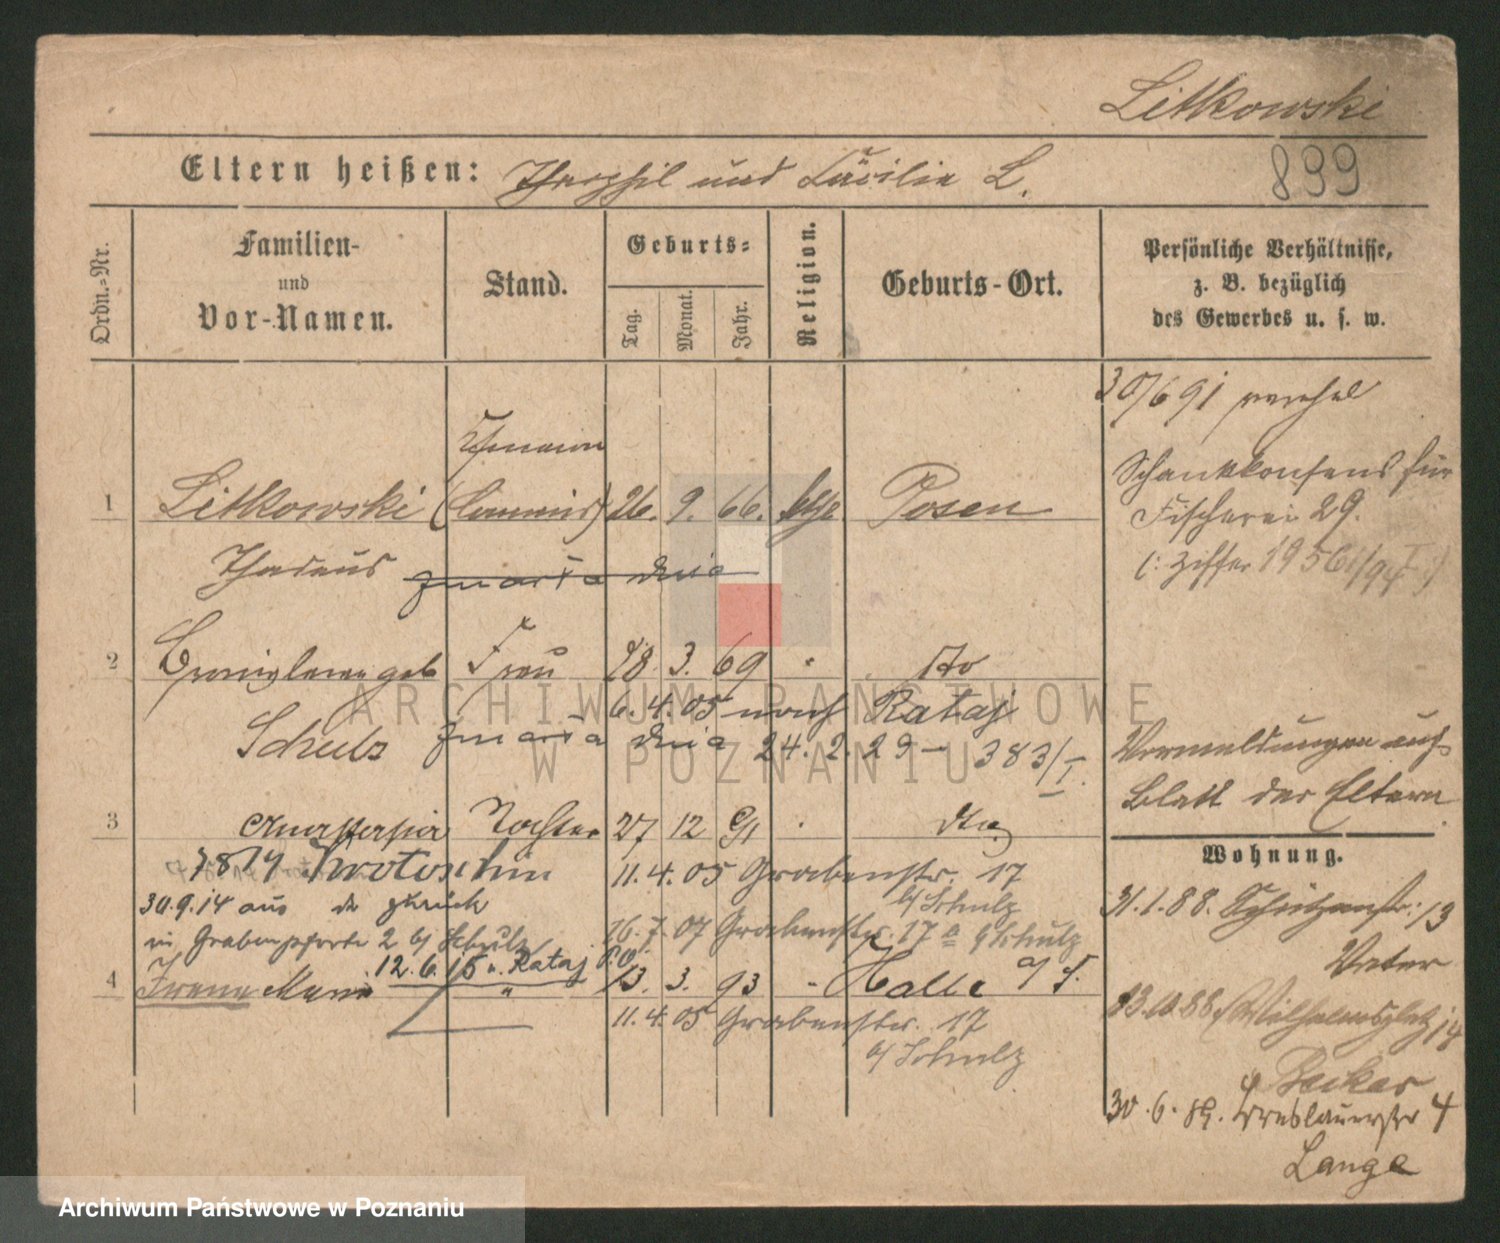 Litkowski
899
Eltern heißen: Theophil und Cäcilie L.
Ordn.-Nr.
Familien-
und
Vor-Namen.
Stand.
Geburts-
Tag.
Monat.
Jahr.
Religion.
Geburts-Ort.
Persönliche Verhältnisse,
z. B. bezüglich
des Gewerbes u. s. w.
30/6 91
Schankkonsens für
Fischerei 29.
(: Ziffer
1 Litkowski (Commis) 26. 9. 66. Posen
Thadeus zmarła dnia
2 geb Frau 18. 3. 69 dto
6. 4. 05 nach Rataj
Schulz zmarła dnia 24. 2. 29 – 383/I.
Vormeldungen auf
Blatt der Eltern
3 Anastasia Tochter 27 12 91 dto
Krotoschin 11. 4. 05 Grabenstr. 17
b/ Schulz
30.9.14 aus do zurück
in Grabenpforte 2 b/ Schulz
26. 7. 07 Grabenstr. 17 a b/ Schulz
12. 6. 15 n. Rataj
4 Irene Maria " 13. 3. 93 Halle a/S.
11. 4. 05 Grabenstr. 17
b/ Schulz
Wohnung.
31. 1. 88. Schützenstr. 13
Vater
13.10.88. Wilhelmsplatz 14
Becker
30. 6. 89. Breslauerstr 4
Lange
ARCHIWUM PAŃSTWOWE
W POZNANIU
Archiwum Państwowe w Poznaniu